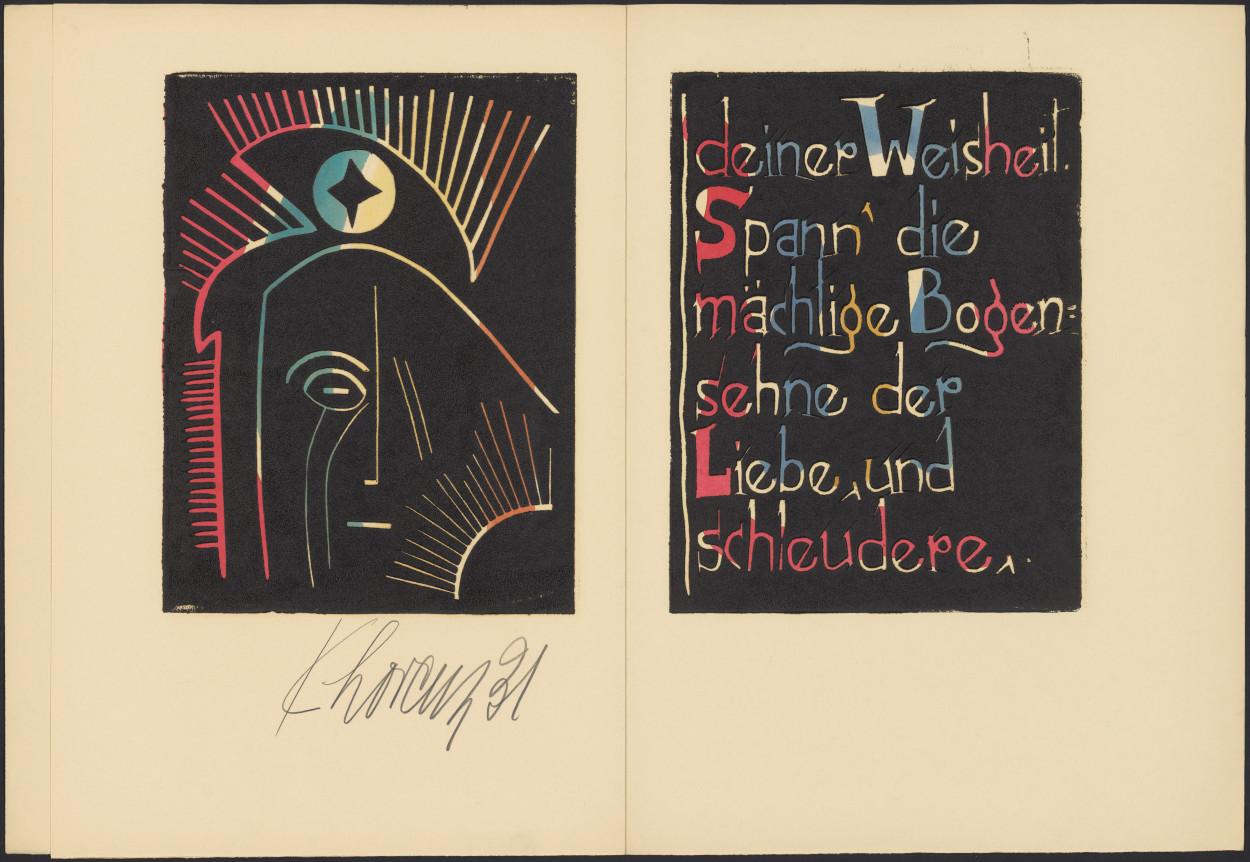 K Lorenz 31
deiner Weisheit.
Spann' die
mächtige Bogen=
sehne der
Liebe, und
schleudere,.